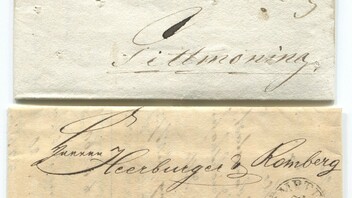 Tittmoning.
Herren Heerburger & Romberg